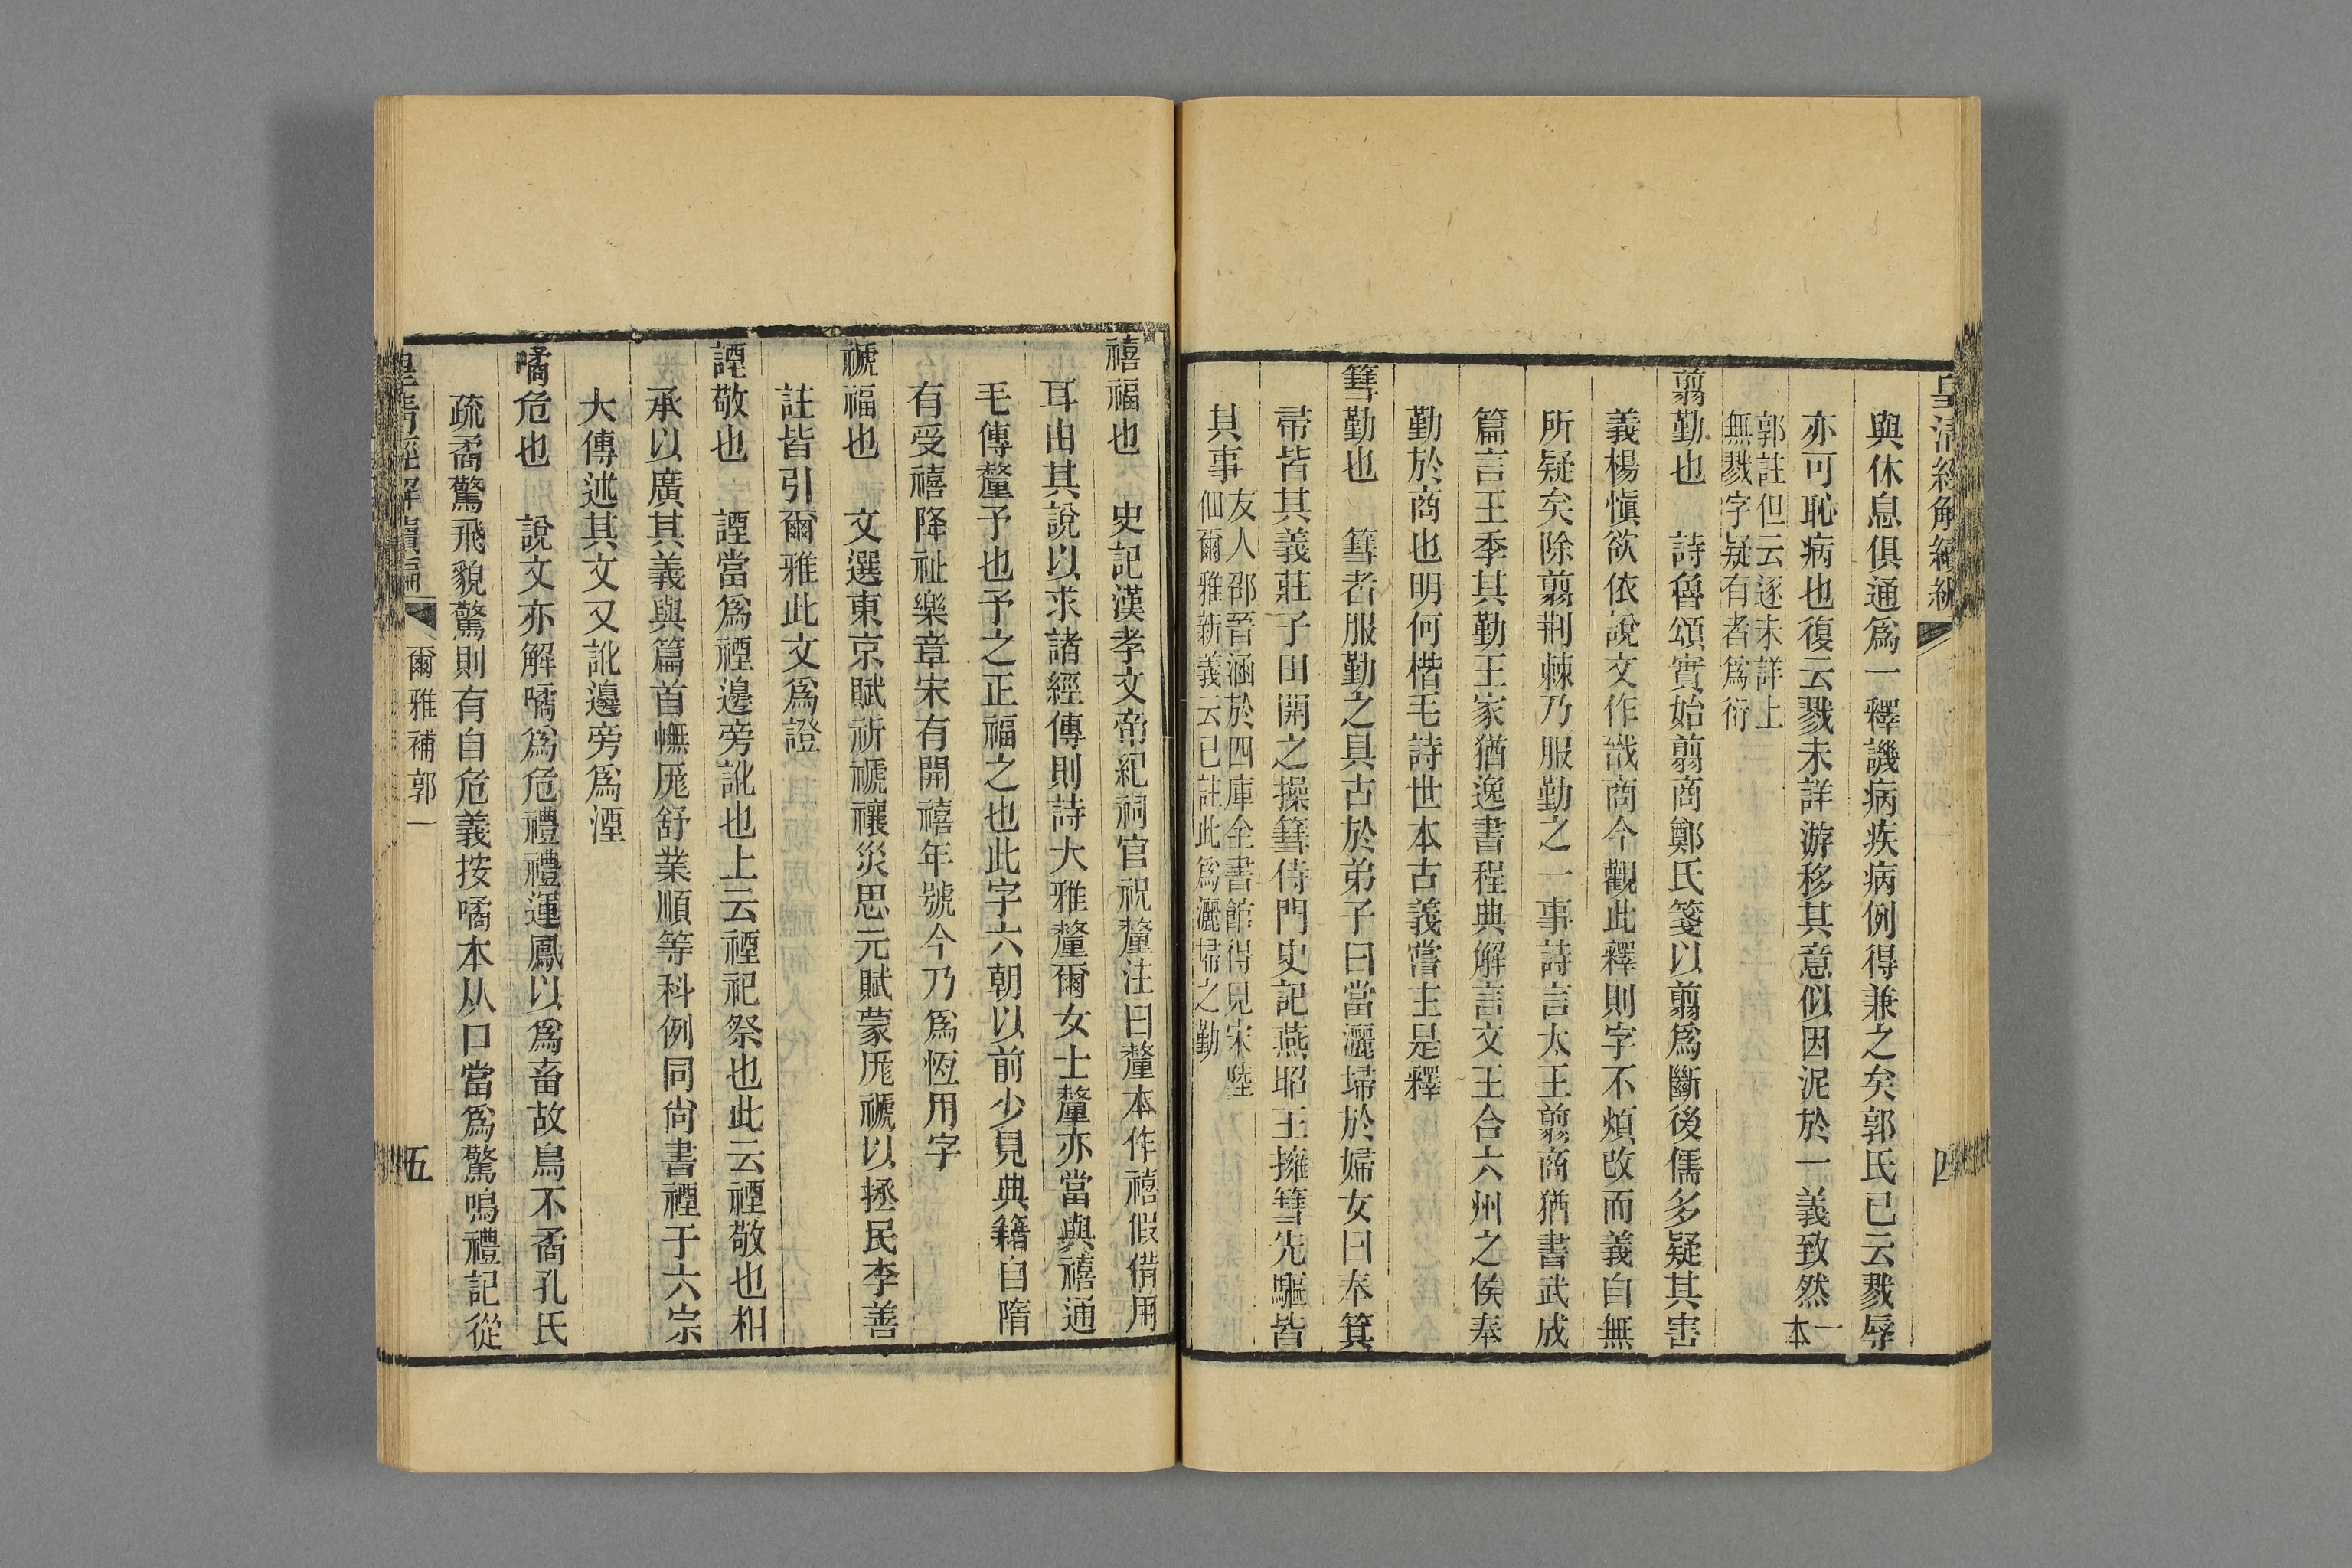 皇清經解續編
四
與休息俱通爲一釋譏病疾病例得兼之矣郭氏已云戮辱
亦可恥病也復云戮未詳游移其意似因泥於一義致然一本
郭註但云逐未詳上
無戮字疑有者爲衍
翦勤也　詩魯頌實始翦商鄭氏箋以翦爲斷後儒多疑其害
義楊愼欲依說文作戩商今觀此釋則字不煩改而義自無
所疑矣除翦荆棘乃服勤之一事詩言太王翦商猶書武成
篇言王季其勤王家猶逸書程典解言文王合六州之侯奉
勤於商也明何楷毛詩世本古義嘗主是釋
篲勤也　篲者服勤之具古於弟子曰當灑埽於婦女曰奉箕
帚皆其義莊子田開之操篲侍門史記燕昭王擁篲先驅皆
其事
友人邵晉涵於四庫全書館得見宋陸
佃爾雅新義云已註此爲灑埽之勤
禧福也　史記漢孝文帝紀祠官祝釐注曰釐本作禧假借用
耳由其說以求諸經傳則詩大雅釐爾女士釐亦當與禧通
毛傳釐予也予之正福之也此字六朝以前少見典籍自隋
有受禧降祉樂章宋有開禧年號今乃爲恆用字
禠福也　文選東京賦祈禠禳災思元賦蒙厖禠以拯民李善
註皆引爾雅此文爲證
諲敬也　諲當爲禋邊旁訛也上云禋祀祭也此云禋敬也相
承以廣其義與篇首幠厖舒業順等科例同尙書禋于六宗
大傳述其文又訛邊旁爲湮
噊危也　說文亦解噊爲危禮禮運鳳以爲畜故鳥不矞孔氏
疏矞驚飛貌驚則有自危義按噊本从口當爲驚鳴禮記從
皇淸經解續編
爾雅補郭一
五